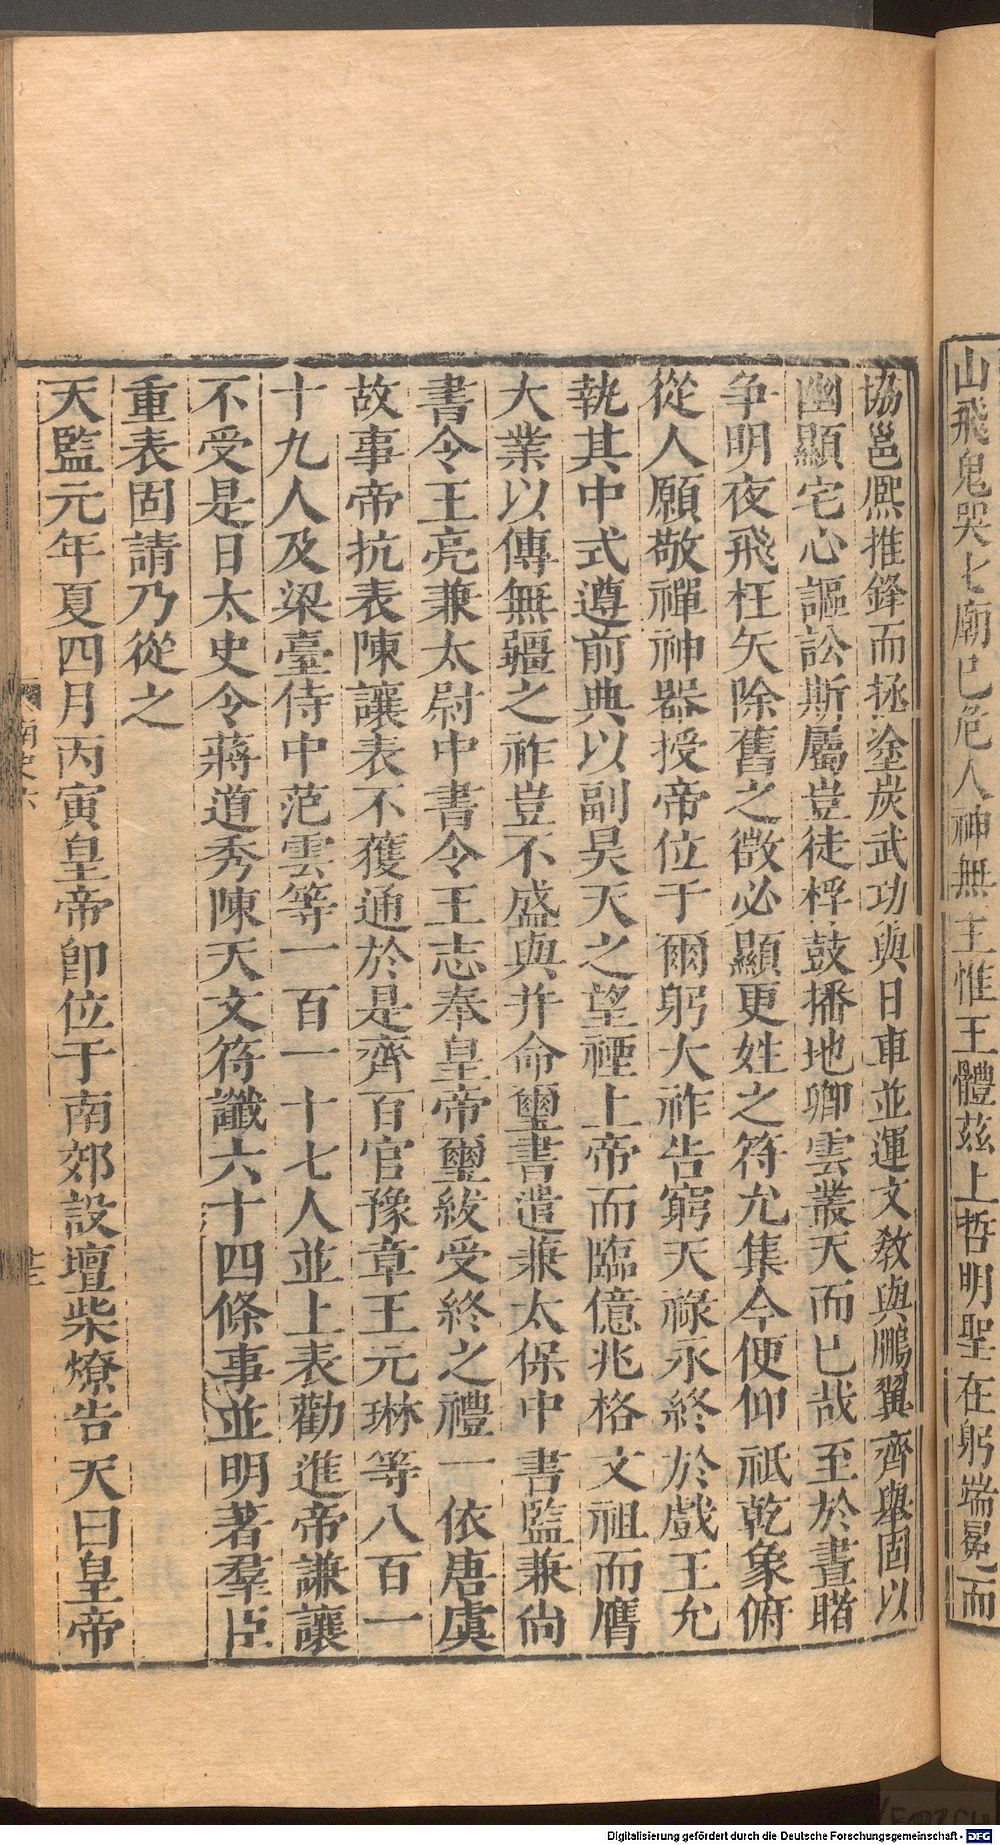 山飛鬼哭七廟已危人神無主惟王體茲上哲明聖在躬端冕而
協邕熈推鋒而拯塗炭武功與日車並運文教與鵬翼齊舉固以
幽顯宅心謳訟斯屬豈徒桴鼓播地卿雲叢天而已哉至於晝睹
争明夜飛枉矢除舊之徵必顯更姓之符允集今便仰祇乾象俯
從人願敬禪神器授帝位于爾躬大祚告窮天祿永終於戲王允
執其中式遵前典以副昊天之望禋上帝而臨億兆格文祖而膺
大業以傳無疆之祚豈不盛與并命璽書遣兼太保中書監兼尙
書令王亮兼太尉中書令王志奉皇帝璽紱受終之禮一依唐虞
故事帝抗表陳讓表不獲通於是齊百官豫章王元琳等八百一
十九人及梁臺侍中范雲等一百一十七人並上表勸進帝謙讓
不受是日太史令蔣道秀陳天文符讖六十四條事並明著羣臣
重表固請乃從之
天監元年夏四月丙寅皇帝卽位于南郊設壇柴燎告天曰皇帝
南史六
Digitalisierung gefördert durch die Deutsche Forschungsgemeinschaft - DFG